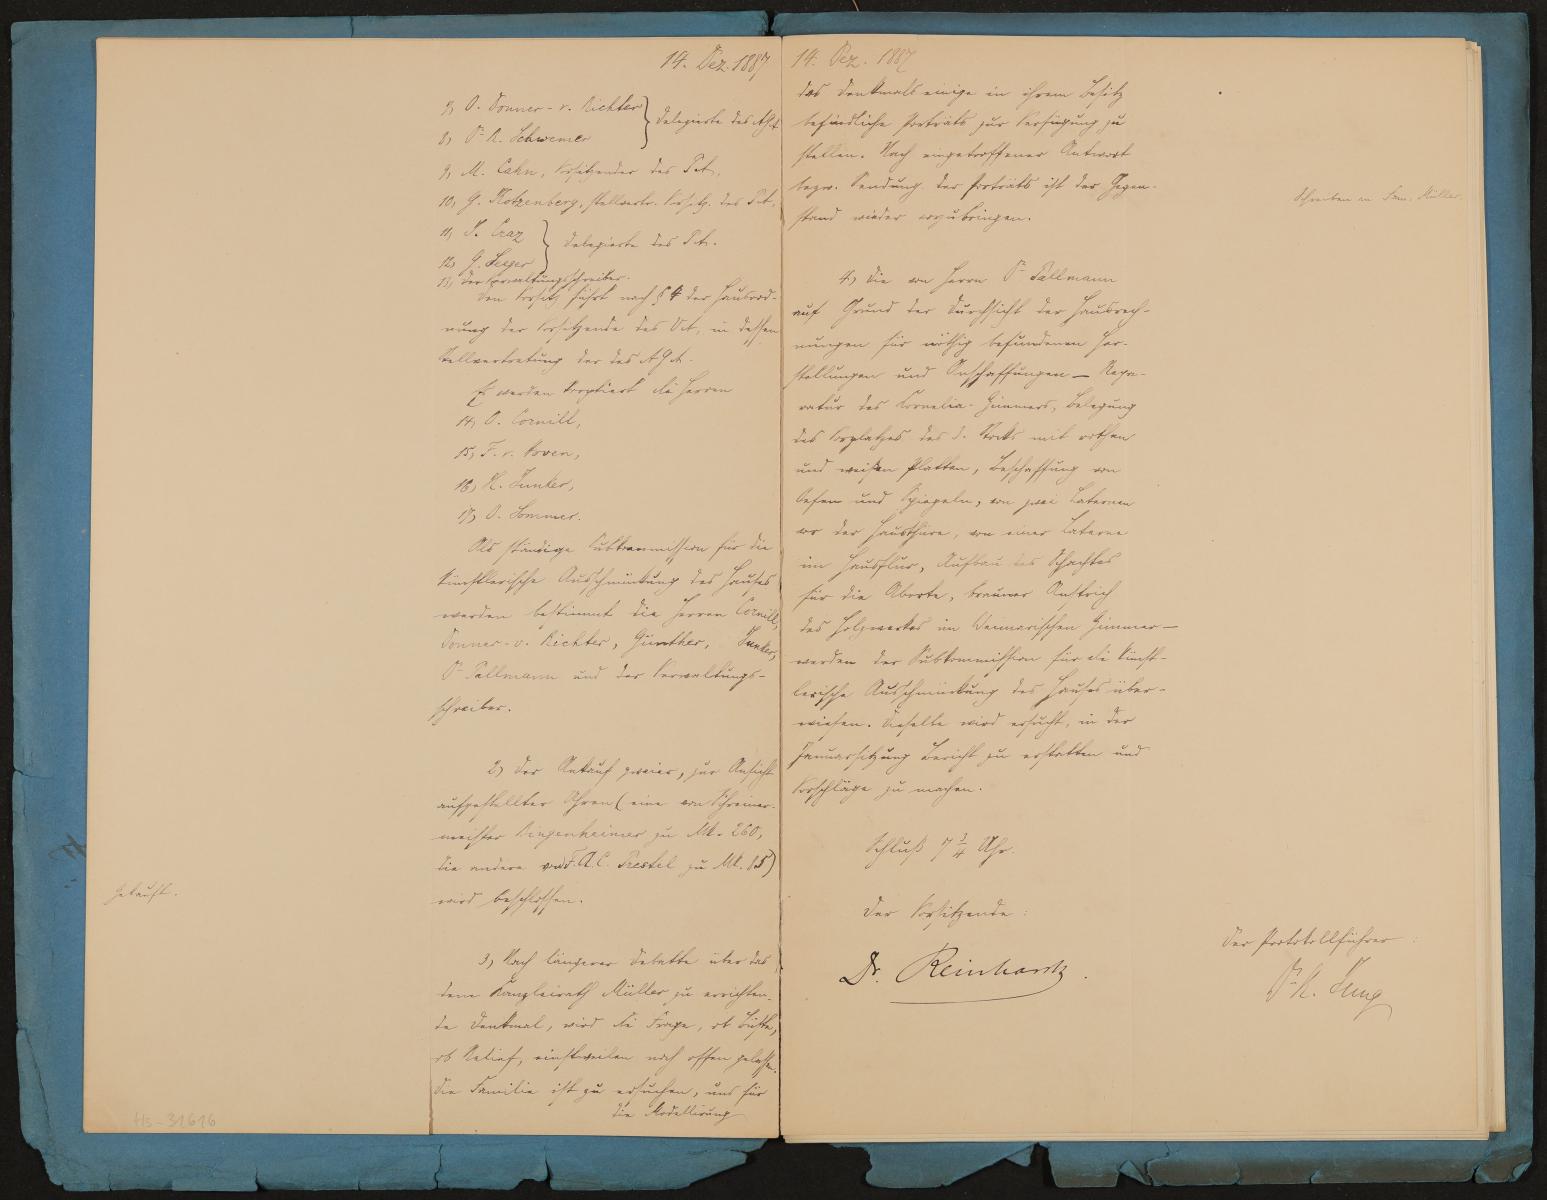 14. Dez. 1887
7, O. Donner - v. Richter
8, Dr R. Schwemer
Delegierte des AGA
9, M. Cahn, Vorsitzender des
10, G. Kotzenberg, stellvertr. Vorsitz. des
11,
12, G. Seeger
Delegierte des
13, Der Verwaltungsschreiber.
Den Vorsitz führt nach § 4 der Hausord-
nung der Vorsitzende des VA, in dessen
Stellvertretung der des AGA.
Es werden kooptiert die Herren
14, O. Cornill,
15, F. v. Hoven,
16, H. Junker,
17, O. Sommer.
Als ständige Subkommission für die
künstlerische Ausschmückung des Hauses
werden bestimmt die Herren Cornill,
Donner - v. Richter, Günther, Junker,
Dr Pallmann und der Verwaltungs-
schreiber.
2, Der Ankauf zweier, zur Ansicht
aufgestellter Uhren (eine von Schreiner-
meister Bingenheimer zu Mk. 260,
die andere von F. A. C. Prestel zu Mk. 85)
wird beschlossen.
gekauft.
3, Nach längerer Debatte über das
dem Kanzleirath Müller zu errichten-
de Denkmal, wird die Frage, ob Büste,
ob Relief, einstweilen noch offen gelassen.
Die Familie ist zu ersuchen, uns für
die Modellirung
Hs-31616
14. Dez. 1887
des Denkmals einige in ihrem Besitz
befindliche Porträts zur Verfügung zu
stellen. Nach eingetroffener Antwort
bezw. Sendung der Porträts ist der Gegen-
stand wieder vorzubringen.
Schreiben an Fam. Müller.
4, Die von Herrn Dr Pallmann
auf Grund der Durchsicht der Hausrech-
nungen für nöthig befundenen Her-
stellungen und Anschaffungen — Repa-
ratur des Cornelia-Zimmers, Belegung
des Vorplatzes des 2. Stocks mit rothen
und weißen Platten, Beschaffung von
Oefen und Spiegeln, von zwei Laternen
vor der Hausthüre, von einer Laterne
im Hausflur, Aufbau des Schachtes
für die Aborte, brauner Anstrich
des Holzwerkes im Weimarischen Zimmer —
werden der Subkommission für die künst-
lerische Ausschmückung des Hauses über-
wiesen. Dieselbe wird ersucht, in der
Januarsitzung Bericht zu erstatten und
Vorschläge zu machen.
Schluß 7 3/4 Uhr.
Der Vorsitzende:
Dr. Reinhardt.
Der Protokollführer:
Dr R. Jung